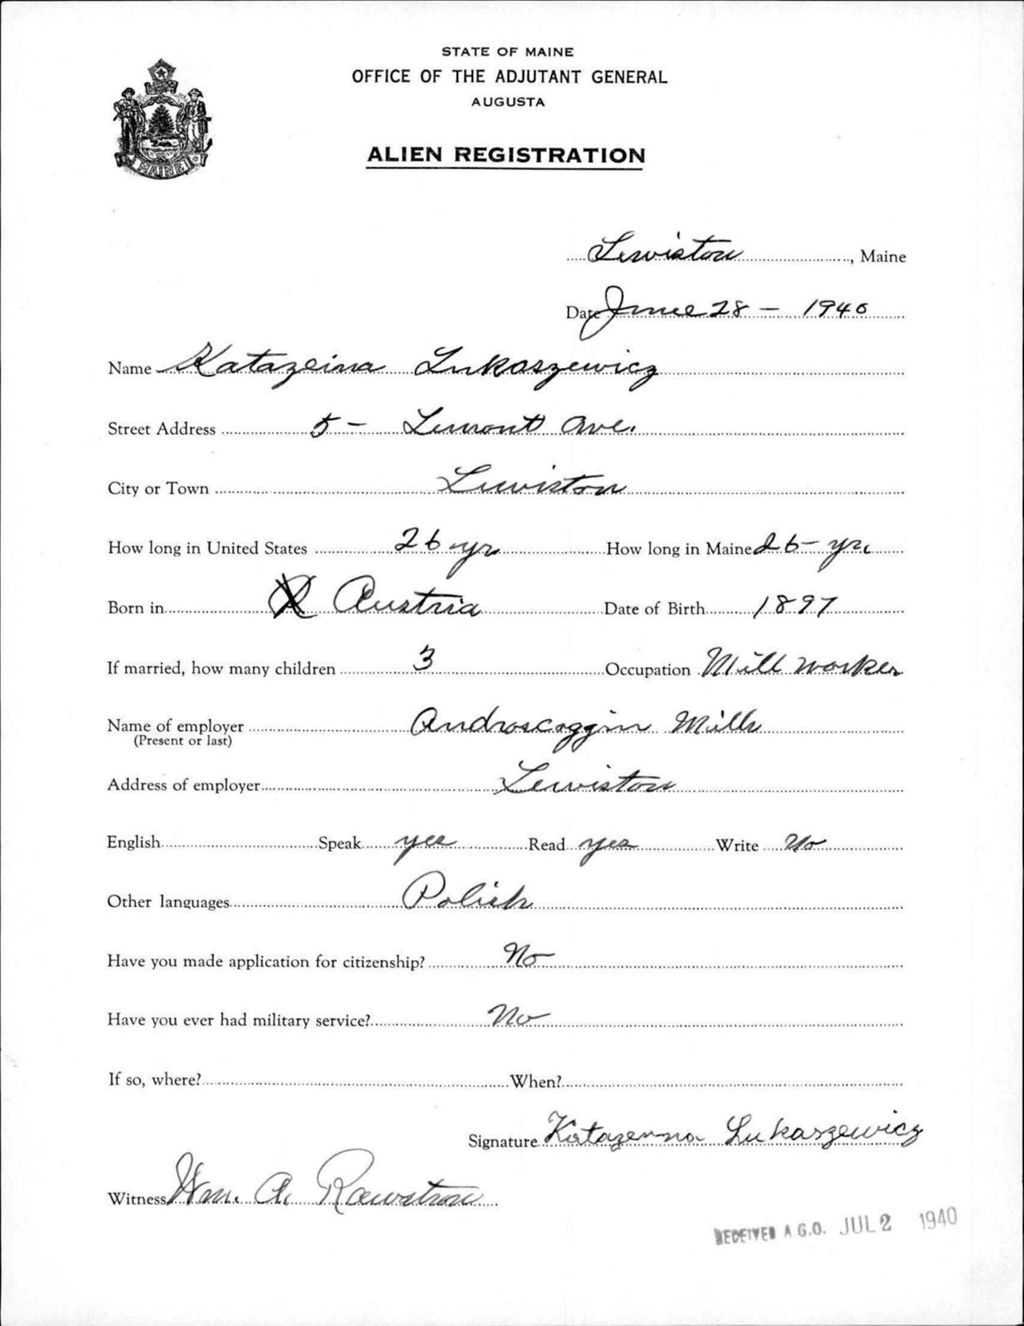 STATE OF MAINE
OFFICE OF THE ADJUTANT GENERAL
AUGUSTA
ALIEN REGISTRATION
MAINE
Lewiston, Maine
Date June 28 - 1940
Name Katazeina Lukaszewicz
Street Address 5 - Lemont Ave.
City or Town Lewiston
How long in United States 26 yr How long in Maine 26 - yr.
Born in Austria Date of Birth 1897
If married, how many children 3 Occupation Mill worker
Name of employer Androscoggin Mills
(Present or last)
Address of employer Lewiston
English Speak yes Read yes Write No
Other languages Polish
Have you made application for citizenship? No
Have you ever had military service? No
If so, where? When?
Signature Katazerna Lukaszewicz
Witness Wm. A. Rawstron
RECEIVED A.G.O. JUL 2 1940